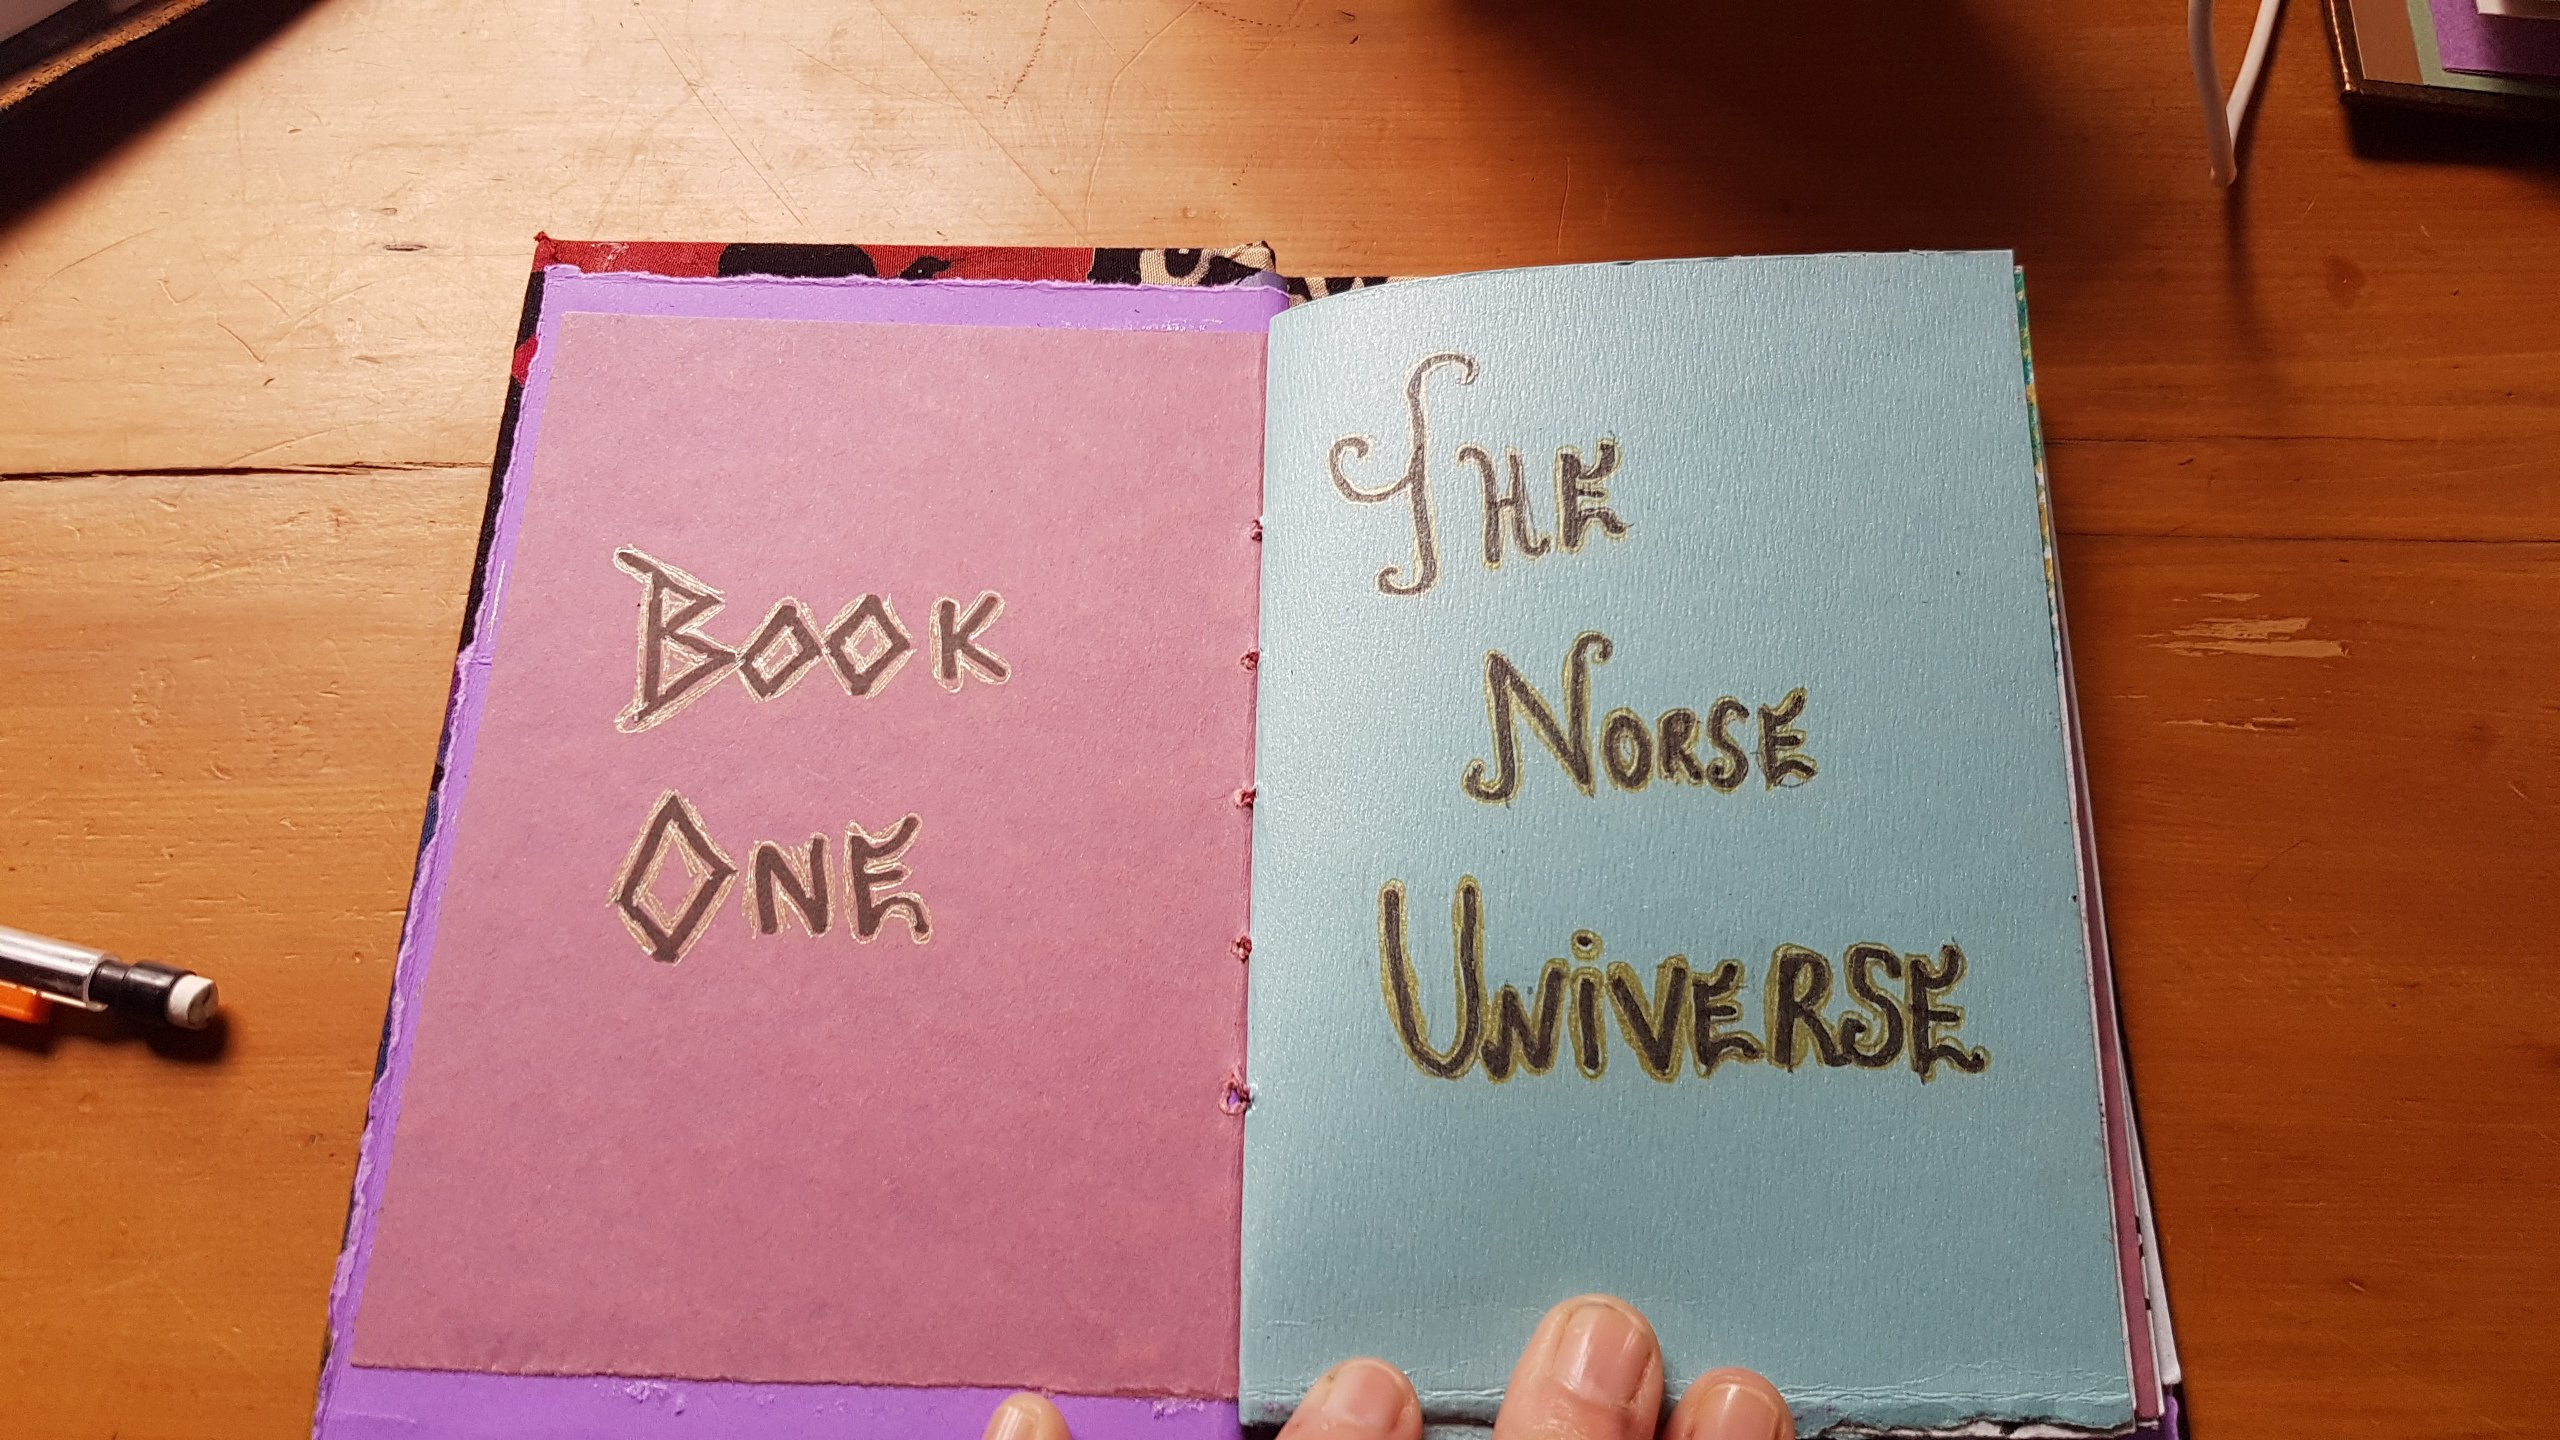 Book
One
The
Norse
Universe